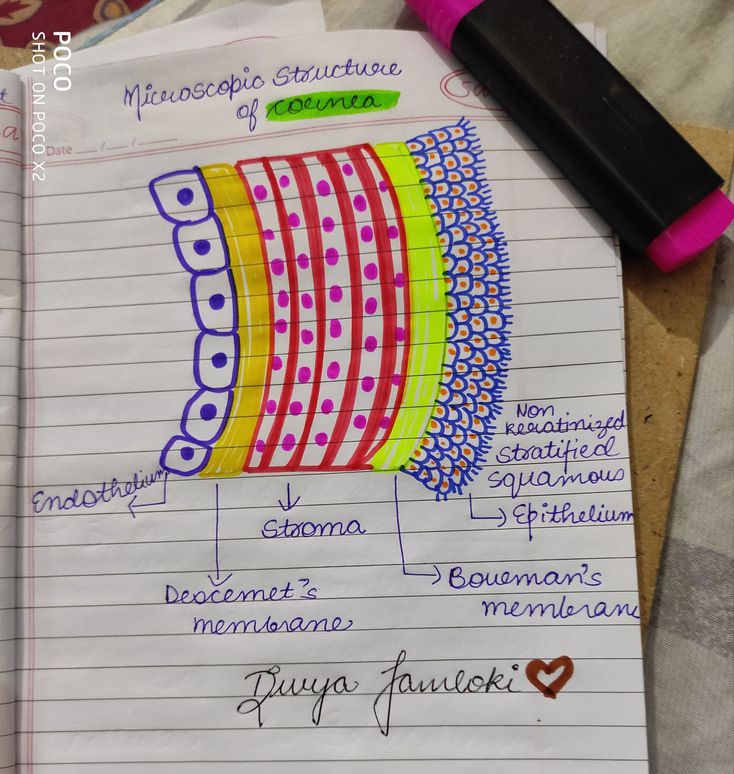 POCO
SHOT ON POCO X2
Microscopic Structure
of cornea
Date
Non
keratinized
Stratified
Squamous
Epithelium
Endothelium
Stroma
Descemet's
membrane
Bowman's
membrane